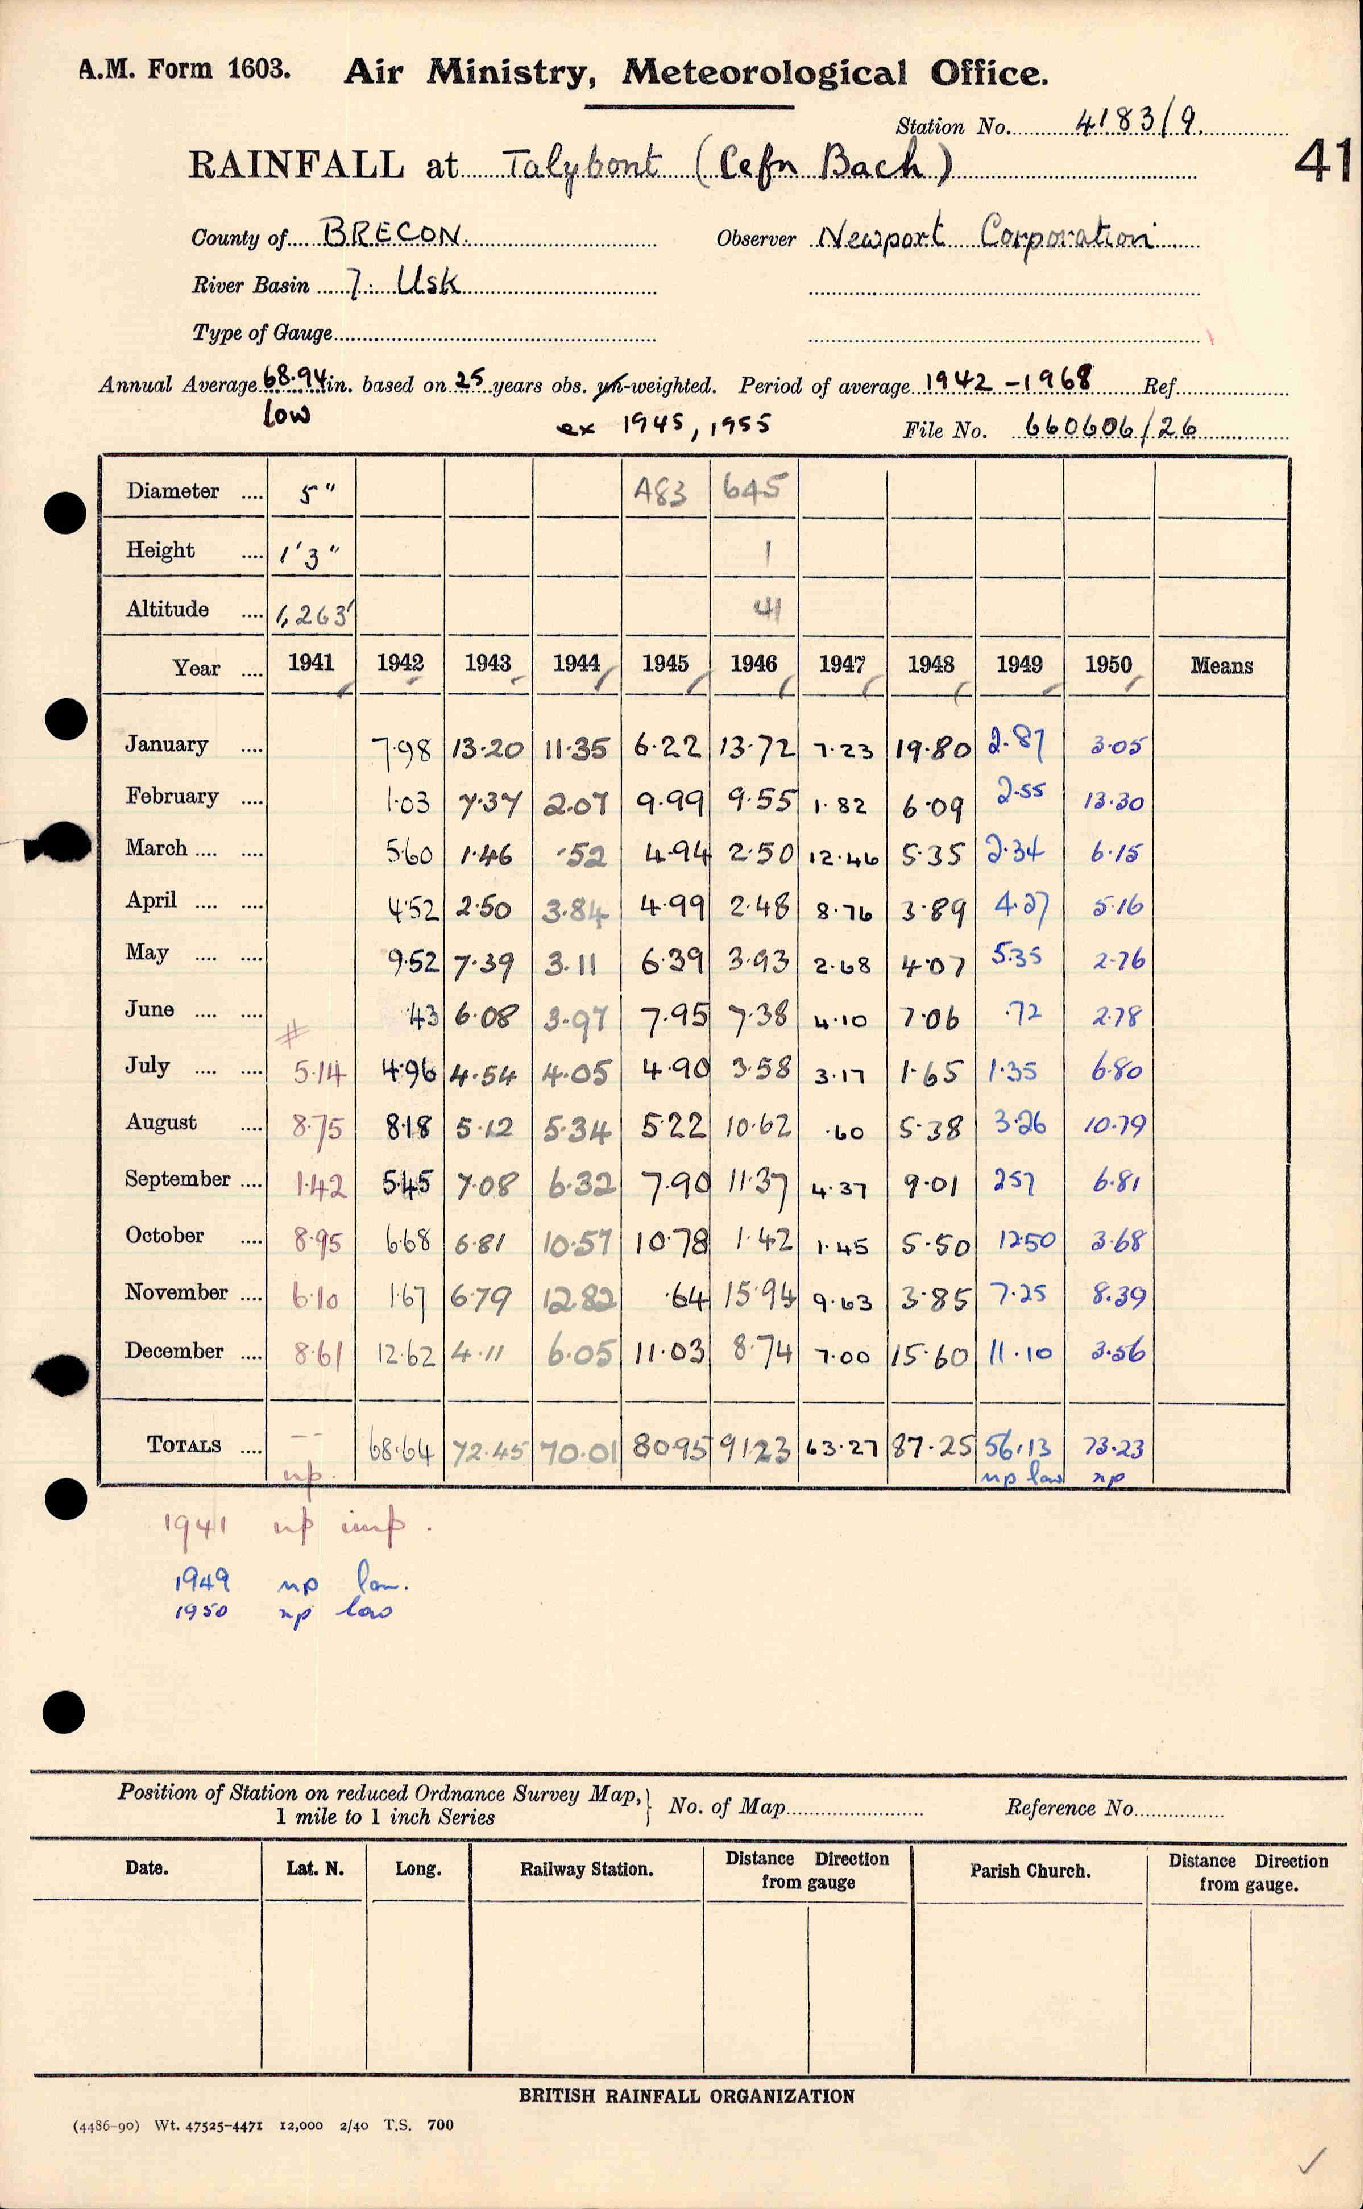 A.M. Form 1603. Air Ministry, Meteorological Office.
Station No. 4183/9.
41
RAINFALL at Talybont (Cefn Bach)
County of BRECON. Observer Newport Corporation
River Basin 7. Usk
Type of Gauge
Annual Average 68.94 in. based on 25 years obs. un-weighted. Period of average 1942 - 1968 Ref.
low ex 1945, 1955 File No. 660606/26
Diameter .... 5" A83 645
Height .... 1'3" 1
Altitude .... 1,263' 41
Year .... 1941 1942 1943 1944 1945 1946 1947 1948 1949 1950 Means
January .... 7.98 13.20 11.35 6.22 13.72 7.23 19.80 2.87 3.05
February .... 1.03 7.37 2.07 9.99 9.55 1.82 6.09 2.55 13.30
March .... .... 5.60 1.46 .52 4.94 2.50 12.46 5.35 2.34 6.15
April .... .... 4.52 2.50 3.84 4.99 2.48 8.76 3.89 4.27 5.16
May .... .... 9.52 7.39 3.11 6.39 3.93 2.68 4.07 5.35 2.76
June .... .... # .43 6.08 3.97 7.95 7.38 4.10 7.06 .72 2.78
July .... .... 5.14 4.96 4.54 4.05 4.90 3.58 3.17 1.65 1.35 6.80
August .... 8.75 8.18 5.12 5.34 5.22 10.62 .60 5.38 3.26 10.79
September .... 1.42 5.45 7.08 6.32 7.90 11.37 4.37 9.01 2.57 6.81
October .... 8.95 6.68 6.81 10.57 10.78 1.42 1.45 5.50 12.50 3.68
November .... 6.10 1.67 6.79 12.82 .64 15.94 9.63 3.85 7.25 8.39
December .... 8.61 12.62 4.11 6.05 11.03 8.74 7.00 15.60 11.10 3.56
TOTALS .... -- 68.64 72.45 70.01 80.95 91.23 63.27 87.25 56.13 73.23
np np low np
1941 np imp.
1949 np low.
1950 np low
Position of Station on reduced Ordnance Survey Map, } No. of Map Reference No.
1 mile to 1 inch Series
Date. Lat. N. Long. Railway Station. Distance Direction from gauge Parish Church. Distance Direction from gauge.
BRITISH RAINFALL ORGANIZATION
(4486-90) Wt. 47525-4471 12,000 2/40 T.S. 700